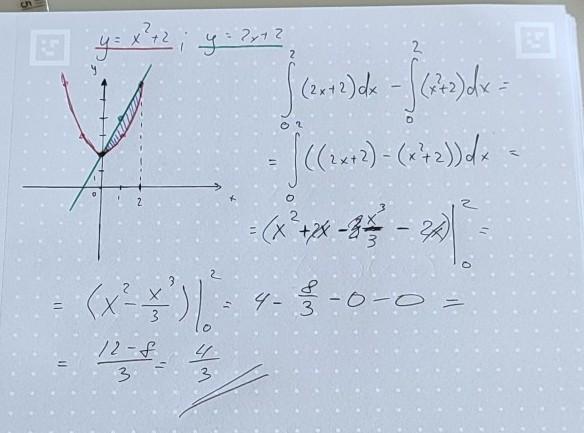 y = x²+2 ; y = 2x+2
y
1
0 1 2 x
∫₀² (2x+2)dx - ∫₀² (x²+2)dx =
= ∫₀² ((2x+2) - (x²+2))dx =
= (x² + 2x - x³/3 - 2x)|₀² =
= (x² - x³/3)|₀² = 4 - 8/3 - 0 - 0 =
= (12-8)/3 = 4/3